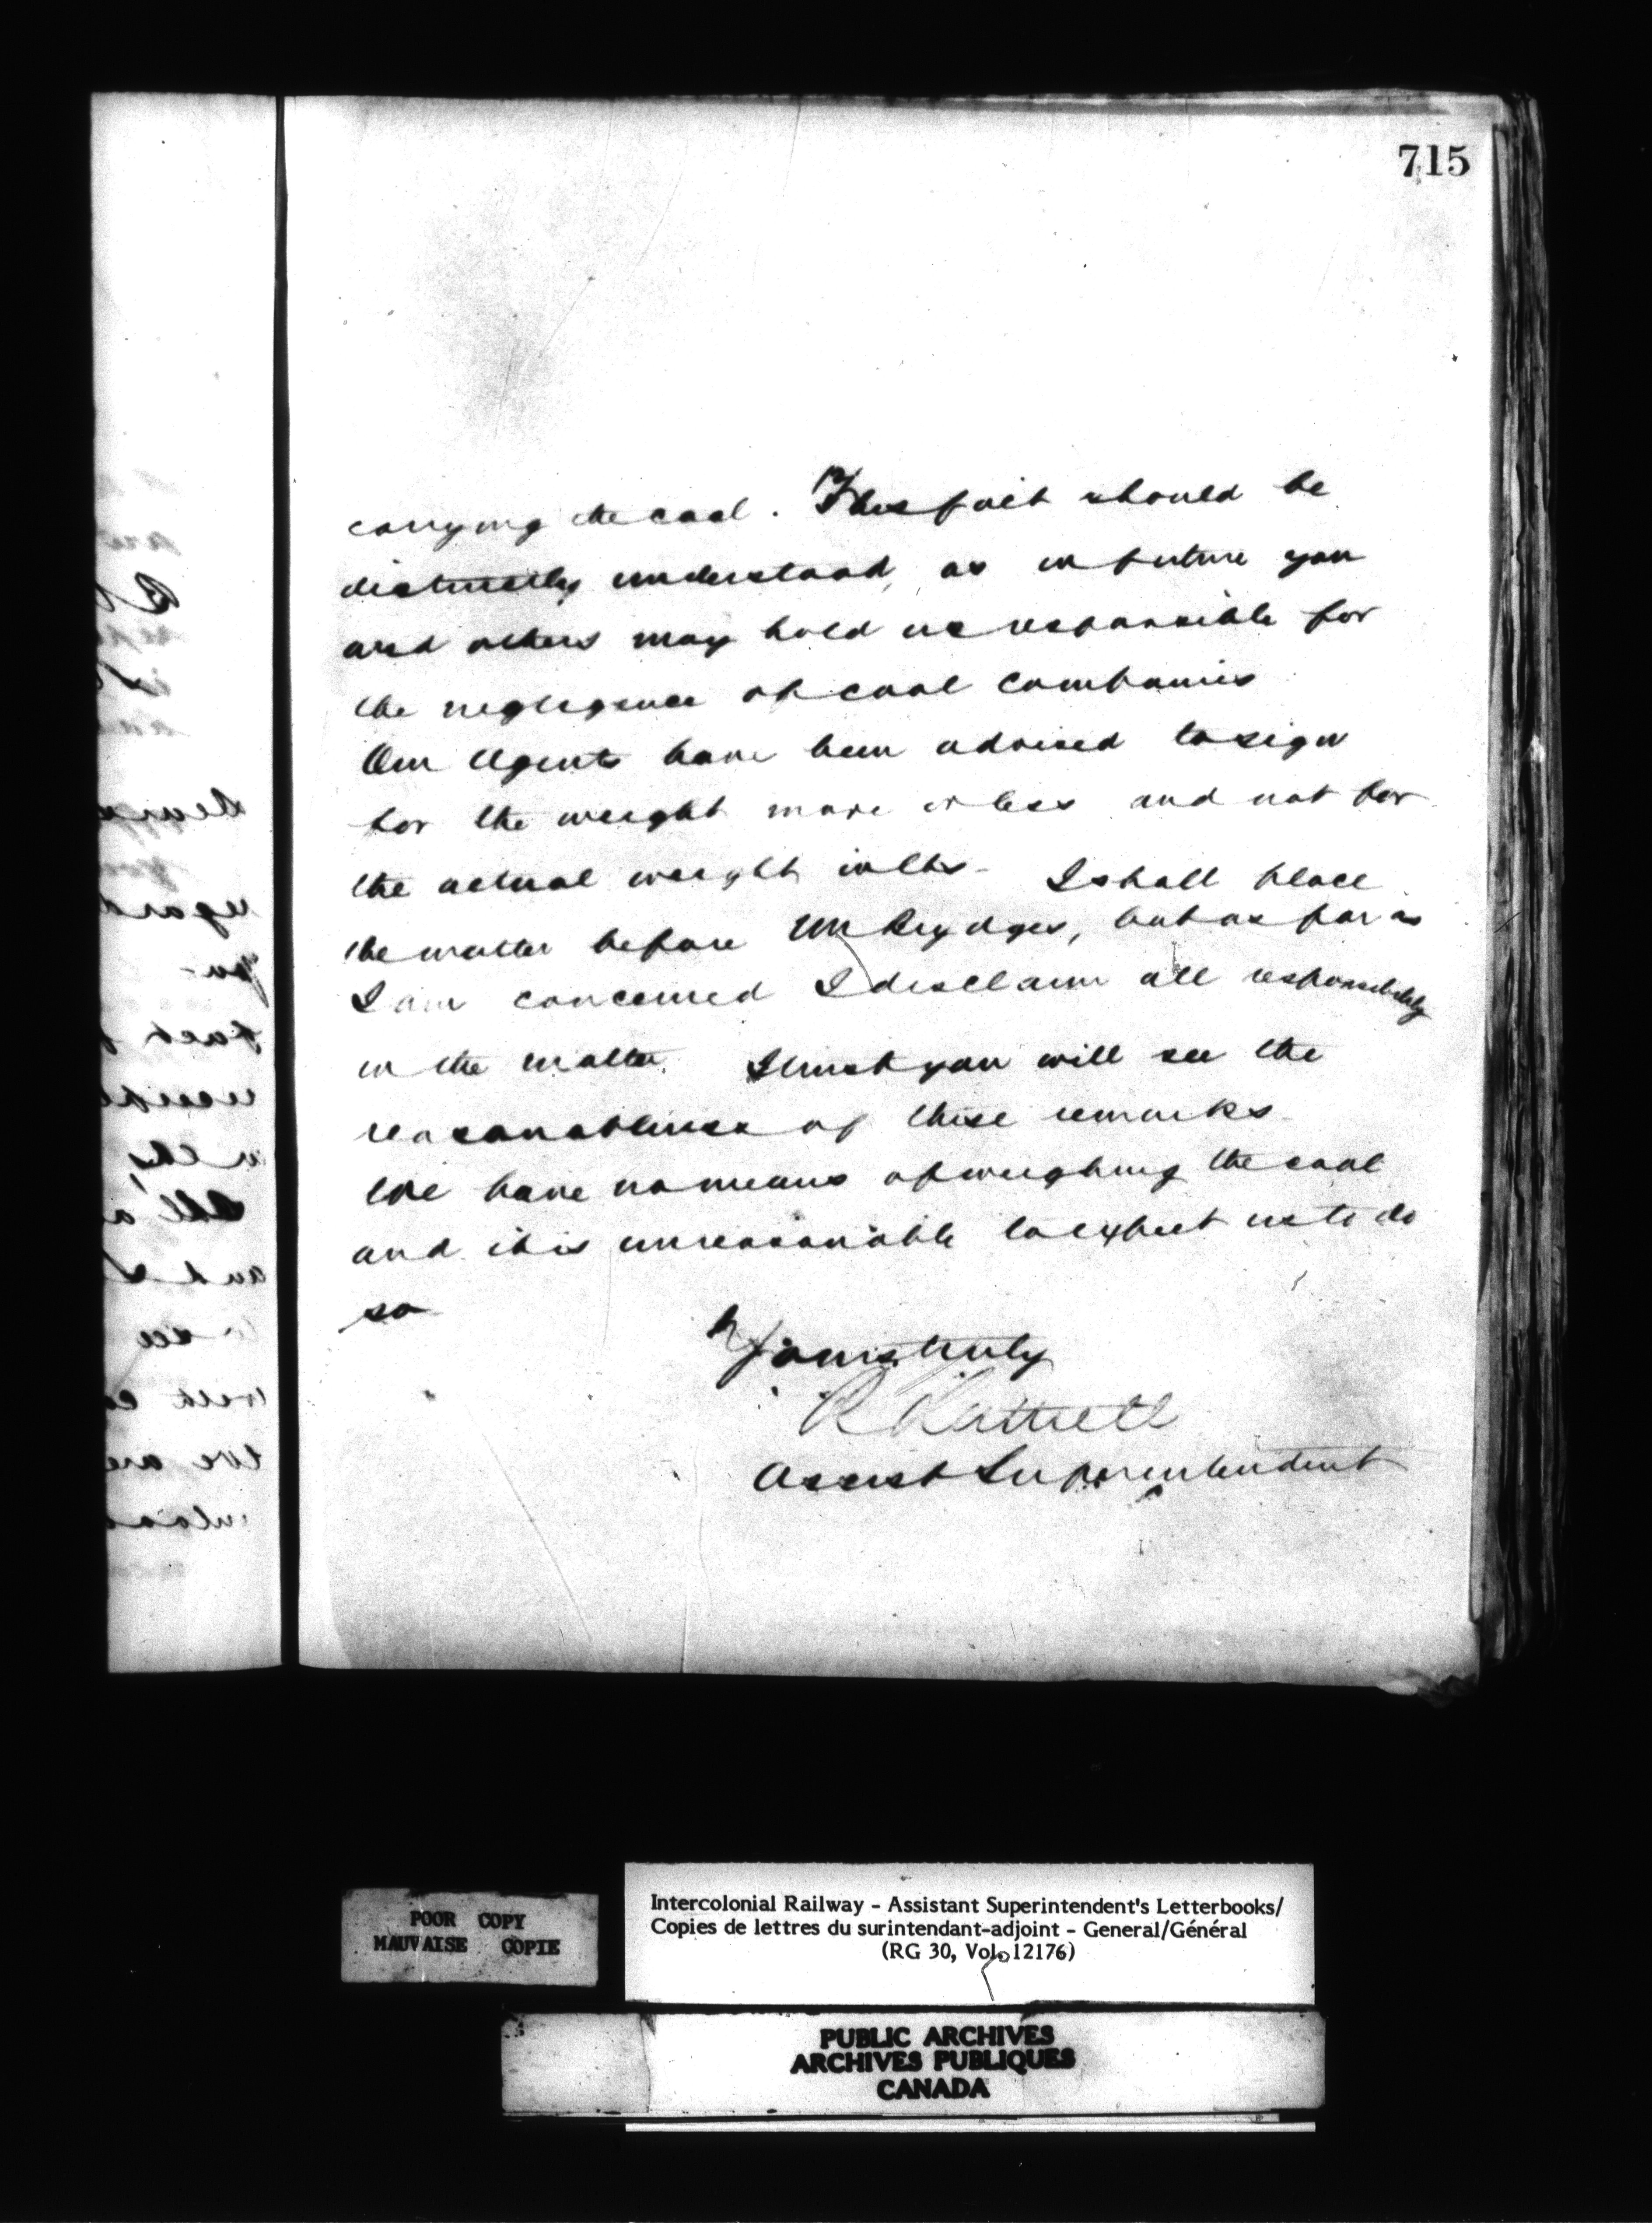 715
carrying the coal. This fact should be
distinctly understood, as in future you
and others may hold us responsible for
the negligence of coal companies
Our Agents have been advised to sign
for the weight more or less and not for
the actual weight in lbs. I shall place
the matter before Mr Brydges, but as far as
I am concerned I disclaim all responsibility
in the matter. I trust you will see the
reasonableness of these remarks.
We have no means of weighing the coal
and it is unreasonable to expect us to do
so
Yours truly
R Luttrell
Assist Superintendent
POOR COPY
MAUVAISE COPIE
Intercolonial Railway - Assistant Superintendent's Letterbooks/
Copies de lettres du surintendant-adjoint - General/Général
(RG 30, Vol. 12176)
PUBLIC ARCHIVES
ARCHIVES PUBLIQUES
CANADA